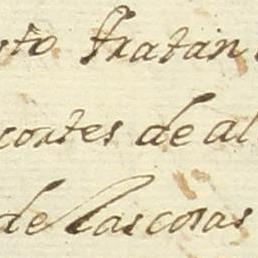 sto tratan
cortes de al
de las cosas